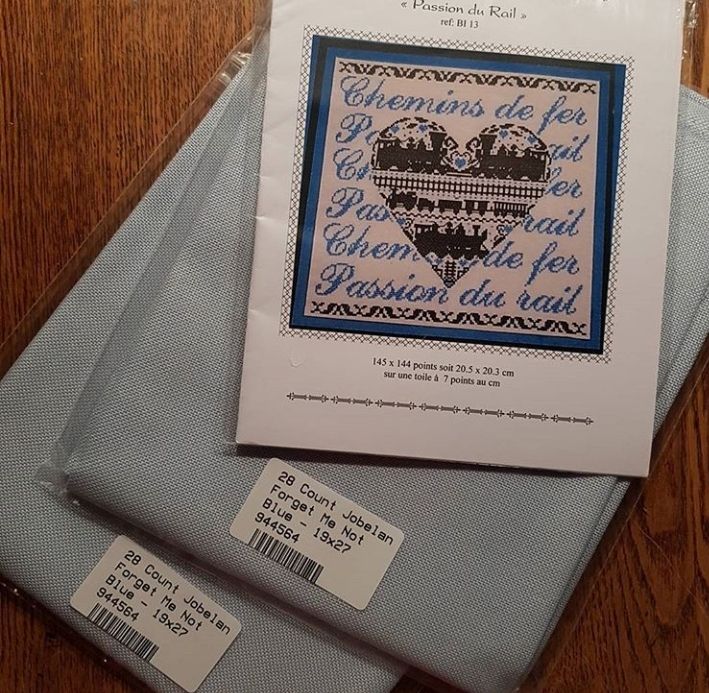 « Passion du Rail »
ref: BI 13
Chemins de fer
Pa ail
Ch er
Pas rail
Chem de fer
Passion du rail
145 x 144 points soit 20.5 x 20.3 cm
sur une toile à 7 points au cm
28 Count Jobelan
Forget Me Not
Blue - 19x27
944564
28 Count Jobelan
Forget Me Not
Blue - 19x27
944564